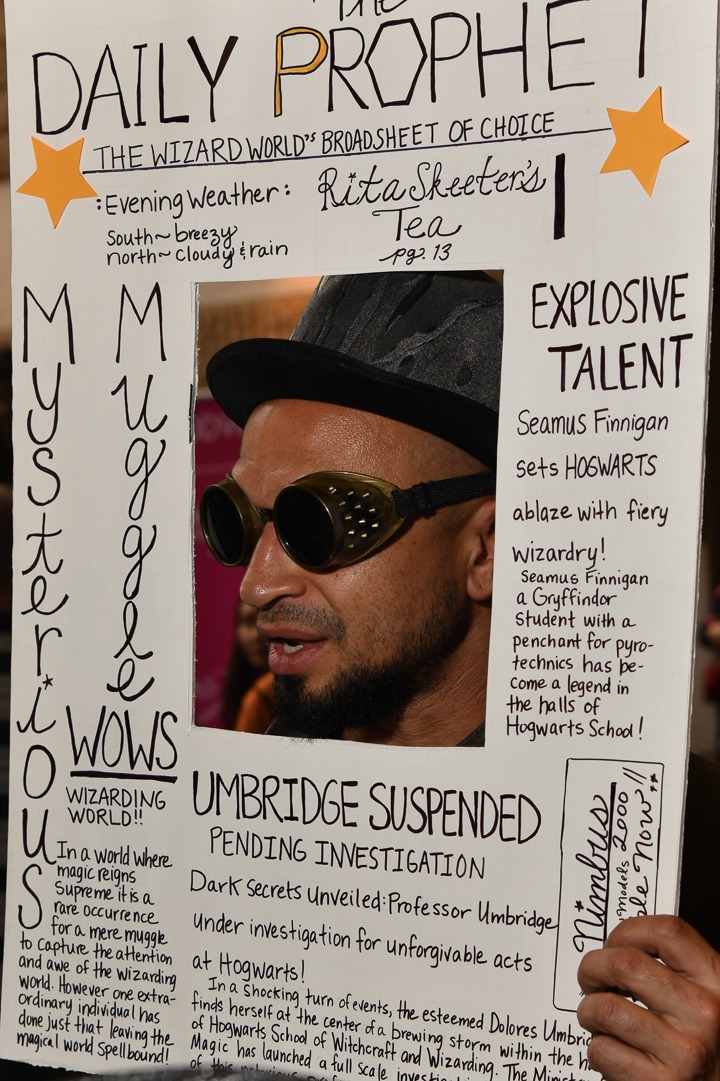 The
DAILY PROPHET
THE WIZARD WORLD'S BROADSHEET OF CHOICE
:Evening Weather:
South~ breezy
north~ cloudy & rain
Rita Skeeter's
Tea
pg. 13
Mysterious
Muggle
WOWS
WIZARDING
WORLD!!
In a world where
magic reigns
Supreme it is a
rare occurrence
for a mere muggle
to capture the attention
and awe of the wizarding
world. However one extra-
ordinary individual has
done just that leaving the
magical world Spellbound!
EXPLOSIVE
TALENT
Seamus Finnigan
sets HOGWARTS
ablaze with fiery
wizardry!
Seamus Finnigan
a Gryffindor
Student with a
penchant for pyro-
technics has be-
come a legend in
the halls of
Hogwarts School!
UMBRIDGE SUSPENDED
PENDING INVESTIGATION
Dark secrets Unveiled: Professor Umbridge
under investigation for unforgivable acts
at Hogwarts!
In a shocking turn of events, the esteemed Dolores Umbrid
finds herself at the center of a brewing storm within the h
of Hogwarts School of Witchcraft and Wizarding. The Minist
Magic has launched a full scale investi
of this
Nimbus
Models 2000
Now!!